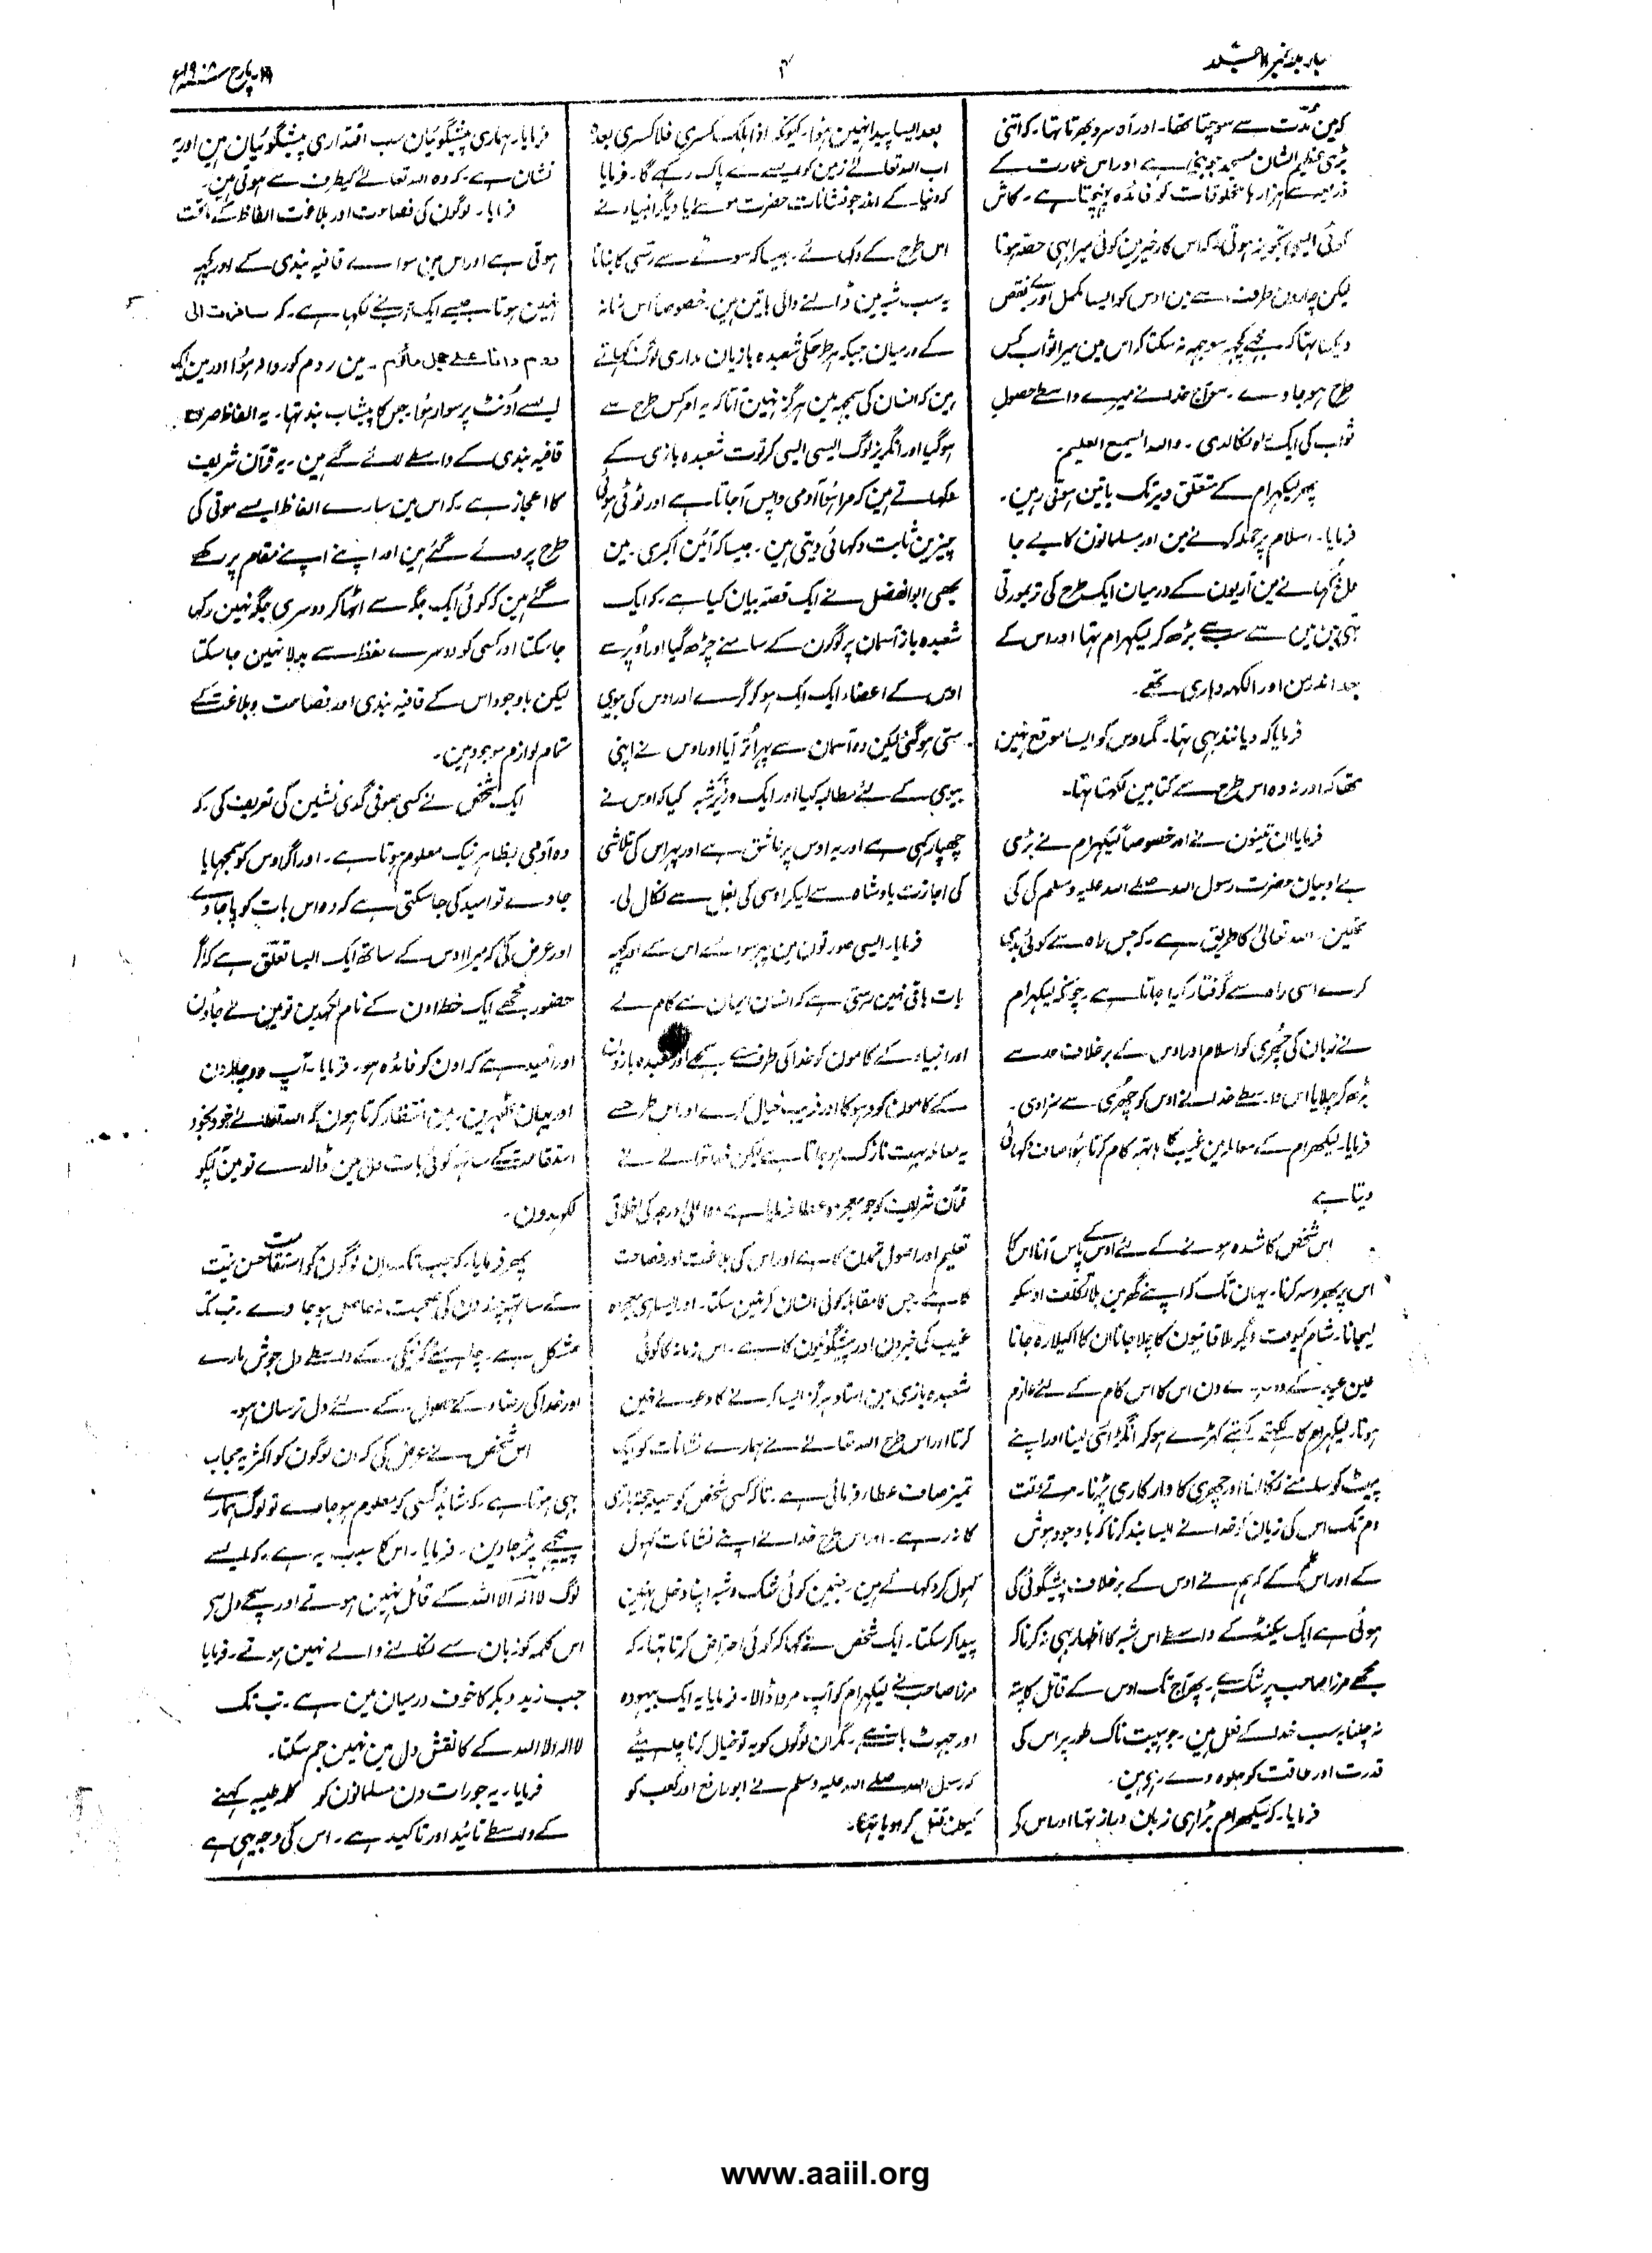 ۱۹ مارچ ۱۹۰۸ء
۴
بدر جلد نمبر ۱۱
کہ مین مدّت سے سوچتا تھا۔ اور آہ سرد بھرتا تہا۔ کہ اتنی
بڑی عظیم الشان مسجد ہے اور اس عمارت کے
ذریعہ سے ہزارہا مخلوقات کو فائدہ پہنچتا ہے۔ کاش
کوئی ایسی تجویز ہوتی کہ اس کارخیر مین کوئی میرا بہی حصہ ہوتا
لیکن چارون طرف سے مین اوس کو ایسا مکمل اور بے نقص
دیکہتا تہا کہ مجھے کچہہ سوجہہ نہ سکتا کہ اس مین میرا ثواب کس
طرح ہوجاوے۔ سو آج خدا نے میرے واسطے حصول
ثواب کی ایک راہ نکالدی۔ واللہ السمیع العلیم۔
پھر لیکہرام کے متعلق دیر تک باتین ہوتی رہین۔
فرمایا۔ اسلام پر حملہ کرنے مین اور مسلمانون کا بے جا
دل دکہانے مین آریون کے درمیان ایک طرح کی تریمورتی
تہی جن مین سے سب سے بڑھ کر لیکہرام تہا اور اس کے
بعد اندرمن اور الکہہ دہاری تھے۔
فرمایا کہ دیانند بہی تہا۔ مگر اوس کو ایسا موقع نہین
تھا کہ اور نہ وہ اس طرح سے کتابین لکہتا تہا۔
فرمایا ان تینون نے اور خصوصاً لیکہرام نے بڑی
بے ادبیان حضرت رسول اللہ صلے اللہ علیہ وسلم کی کی
تہین۔ اللہ تعالیٰ کا طریق ہے۔ کہ جس راہ سے کوئی بدی
کرے اسی راہ سے گرفتار کیا جاتا ہے۔ چونکہ لیکہرام
نے زبان کی چُھری کو اسلام اور اوس کے برخلاف حد سے
بڑھ کر چلایا اس واسطے خدا نے اوس کو چھری سے سزادی۔
فرمایا۔ لیکھرام کے معاملہ مین غیب کا ہاتہہ کام کرتا ہوا صاف دکہائی
دیتا ہے
اس شخص کا شدھ ہونے کے لئے اوس کے پاس آنا اس کا
اس پر بھروسہ کرنا۔ یہان تک کہ اپنے گھر مین بلا تکلف اوسکو
لیجانا۔ شام کیوقت دیگر ملاقاتیون کا چلا جانا ان کا اکیلا رہ جانا
عین عید کے دوسرے دن اس کا اس کام کے لئے عازم
ہونا۔ لیکہرام کا لکہتے لکہتے کہڑے ہوکر انگڑائی لینا اور اپنے
پیٹ کو سامنے نکالنا اور چھری کا وار کاری پڑنا۔ مرتے وقت
دم تک اس کی زبان کو خدا نے ایسا بند کرنا کہ باوجود ہوش
کے اور اس علم کے کہ ہم نے اوس کے برخلاف پیشگوئی کی
ہوئی ہے ایک سیکنڈ کے واسطے اس شبہ کا اظہار بہی نہ کرنا کہ
مجھے مرزا صاحب پر شک ہے۔ پھر آج تک اوس کے قاتل کا پتہ
نہ چلنا یہ سب خدا کے فعل ہین۔ جو ہیبت ناک طور پر اس کی
قدرت اور طاقت کو جلوہ دے رہی ہین۔
فرمایا۔ کہ لیکھرام بڑا ہی زبان دراز تہا اور اس کی
بعد ایسا پیدا نہین ہوا۔ کیونکہ اذا ہلک کسریٰ فلا کسریٰ بعدہ
اب اللہ تعالےٰ زمین کو ایسے سے پاک رکہے گا۔ فرمایا
کہ دنیا کے اندر جو نشانات حضرت موسےٰ یا دیگر انبیاء نے
اس طرح کے دکہائے۔ جیسا کہ سوٹے سے رسّی کا بنانا
یہ سب شبہ مین ڈالنے والی باتین ہین۔ خصوصاً اس زمانہ
کے درمیان جبکہ ہر طرح کی شعبدہ بازیان مداری لوگ دکہاتے
ہین کہ انسان کی سمجہہ مین ہرگز نہین آتا کہ یہ امر کس طرح سے
ہوگیا اور انگریز لوگ ایسی ایسی کرتوت شعبدہ بازی کے
دکہاتے ہین کہ مرا ہوا آدمی واپس آجاتا ہے اور ٹوٹی ہوئی
چیزین ثابت دکہائی دیتی ہین۔ جیسا کہ آئین اکبری مین
بھی ابوالفضل نے ایک قصہ بیان کیا ہے۔ کہ ایک
شعبدہ باز آسمان پر لوگون کے سامنے چڑھ گیا اور اُوپر سے
اوس کے اعضاء ایک ایک ہوکر گرے اور اوس کی بیوی
ستی ہوگئی لیکن وہ آسمان سے پہر اُتر آیا اور اوس نے اپنی
بیوی کے لئے مطالبہ کیا اور ایک وزیر پر شبہ کیا کہ اوس نے
چھپا رکہی ہے اور یہ اوس پر عاشق ہے اور پہر اس کی تلاشی
کی اجازت بادشاہ سے لیکر اوسی کی بغل سے نکال لی۔
فرمایا۔ ایسی صورتون مین پہر سوائے اس کے اور کچہہ
بات باقی نہین رہتی ہے کہ انسان ایمان سے کام لے
اور انبیاء کے کامون کو خدا کی طرف سے سمجھے اور شعبدہ بازون
کے کامون کو دہوکا اور فریب خیال کرے اور اس طرح سے
یہ معاملہ بہت نازک ہوجاتا ہے لیکن خدا تعالےٰ نے
قرآن شریف کو جو معجزہ عطا فرمایا ہے وہ اعلیٰ درجہ کی اخلاقی
تعلیم اور اصول تمدن کا ہے اور اس کی بلاغت اور فصاحت
کا ہے۔ جس کا مقابلہ کوئی انسان کر نہین سکتا۔ اور ایسا ہی معجزہ
غیب کی خبرون اور پیشگوئیون کا ہے۔ اس زمانہ کا کوئی
شعبدہ بازی مین استاد ہرگز ایسا کرنے کا دعوےٰ نہین
کرتا اور اس طرح اللہ تعالےٰ نے ہمارے نشانات کو ایک
تمیز صاف عطا فرمائی ہے۔ تاکہ کسی شخص کو حیلہ حجت بازی
کا نہ رہے۔ اور اس طرح خدا نے اپنے نشانات کہول
کہول کر دکہائے ہین۔ جنمین کوئی شک و شبہ اپنا دخل نہین
پیدا کرسکتا۔ ایک شخص نے کہا کہ کوئی اعتراض کرتا تہا۔ کہ
مرزا صاحب نے لیکہرام کو آپ مروا ڈالا۔ فرمایا یہ ایک بیہودہ
اور جہوٹ بات ہے۔ مگر ان لوگون کو یہ تو خیال کرنا چاہیئے
کہ رسول اللہ صلے اللہ علیہ وسلم نے ابورافع اور کعب کو
کیون قتل کروایا تھا۔
فرمایا۔ ہماری پیشگوئیان سب اقتداری پیشگوئیان ہین اور یہ
نشان ہے۔ کہ وہ اللہ تعالےٰ کیطرف سے ہوتی ہین۔
فرمایا۔ لوگون کی فصاحت اور بلاغت الفاظ کے ماتحت
ہوتی ہے اور اس مین سوائے قافیہ بندی کے اور کچہہ
نہین ہوتا۔ جیسے ایک عرب نے لکہا ہے۔ کہ سافرت الی
روم وانا علے جمل ماتوم۔ مین روم کو روانہ ہوُا اور مین ایک
ایسے اُونٹ پر سوار ہوُا جس کا پیشاب بند تہا۔ یہ الفاظ صرف
قافیہ بندی کے واسطے لائے گئے ہین۔ یہ قرآن شریف
کا اعجاز ہے۔ کہ اس مین سارے الفاظ ایسے موتی کی
طرح پروئے گئے ہین اور اپنے اپنے مقام پر رکہے
گئے ہین کہ کوئی ایک جگہ سے اٹھا کر دوسری جگہ نہین رکہا
جاسکتا اور کسی کو دوسرے لفظ سے بدلا نہین جاسکتا
لیکن باوجود اس کے قافیہ بندی اور فصاحت و بلاغت کے
تمام لوازم موجود ہین۔
ایک شخص نے کسی صوفی گدی نشین کی تعریف کی۔ کہ
وہ آدمی بظاہر نیک معلوم ہوتا ہے۔ اور اگر اوس کو سمجہایا
جاوے تو امید کی جاسکتی ہے کہ وہ اس بات کو پا جاوے
اور عرض کی کہ میرا اوس کے ساتھ ایک ایسا تعلق ہے کہ اگر
حضور مجھے ایک خط اون کے نام لکہدین تو مین لے جاؤن
اور امید ہے کہ اون کو فائدہ ہو۔ فرمایا۔ آپ دو چار دن
اور یہان ٹھہرین۔ مین انتظار کرتا ہون کہ اللہ تعالےٰ خود بخود
استقامت کے ساتہہ کوئی بات دل مین ڈالدے تو مین آپکو
لکہدون۔
پھر فرمایا۔ کہ جب تک ان لوگون کو استقامت حسن نیت
کے ساتہہ چند دن کی صحبت نہ حاصل ہوجاوے۔ تب تک
مشکل ہے۔ چاہیئے کہ نیکی کے واسطے دل جوش مارے
اور خدا کی رضا کے حصول کے لئے دل ترسان ہو۔
اس شخص نے عرض کی کہ ان لوگون کو اکثر یہ حجاب
بہی ہوتا ہے۔ کہ شاید کسی کو معلوم ہوجاوے تو لوگ ہمارے
پیچھے پڑجاوین۔ فرمایا۔ اس کا سبب یہ ہے۔ کہ ایسے
لوگ لاالٰہ الااللہ کے قائل نہین ہوتے اور سچے دل سے
اس کلمہ کو زبان سے نکالنے والے نہین ہوتے۔ فرمایا
جب زید و بکر کا خوف درمیان مین ہے۔ تب تک
لاالہ الااللہ کے کا نقش دل مین نہین جم سکتا۔
فرمایا۔ یہ جو رات دن مسلمانون کو کلمہ طیبہ کہنے
کے واسطے تائید اور تاکید ہے۔ اس کی وجہ یہی ہے
www.aaiil.org